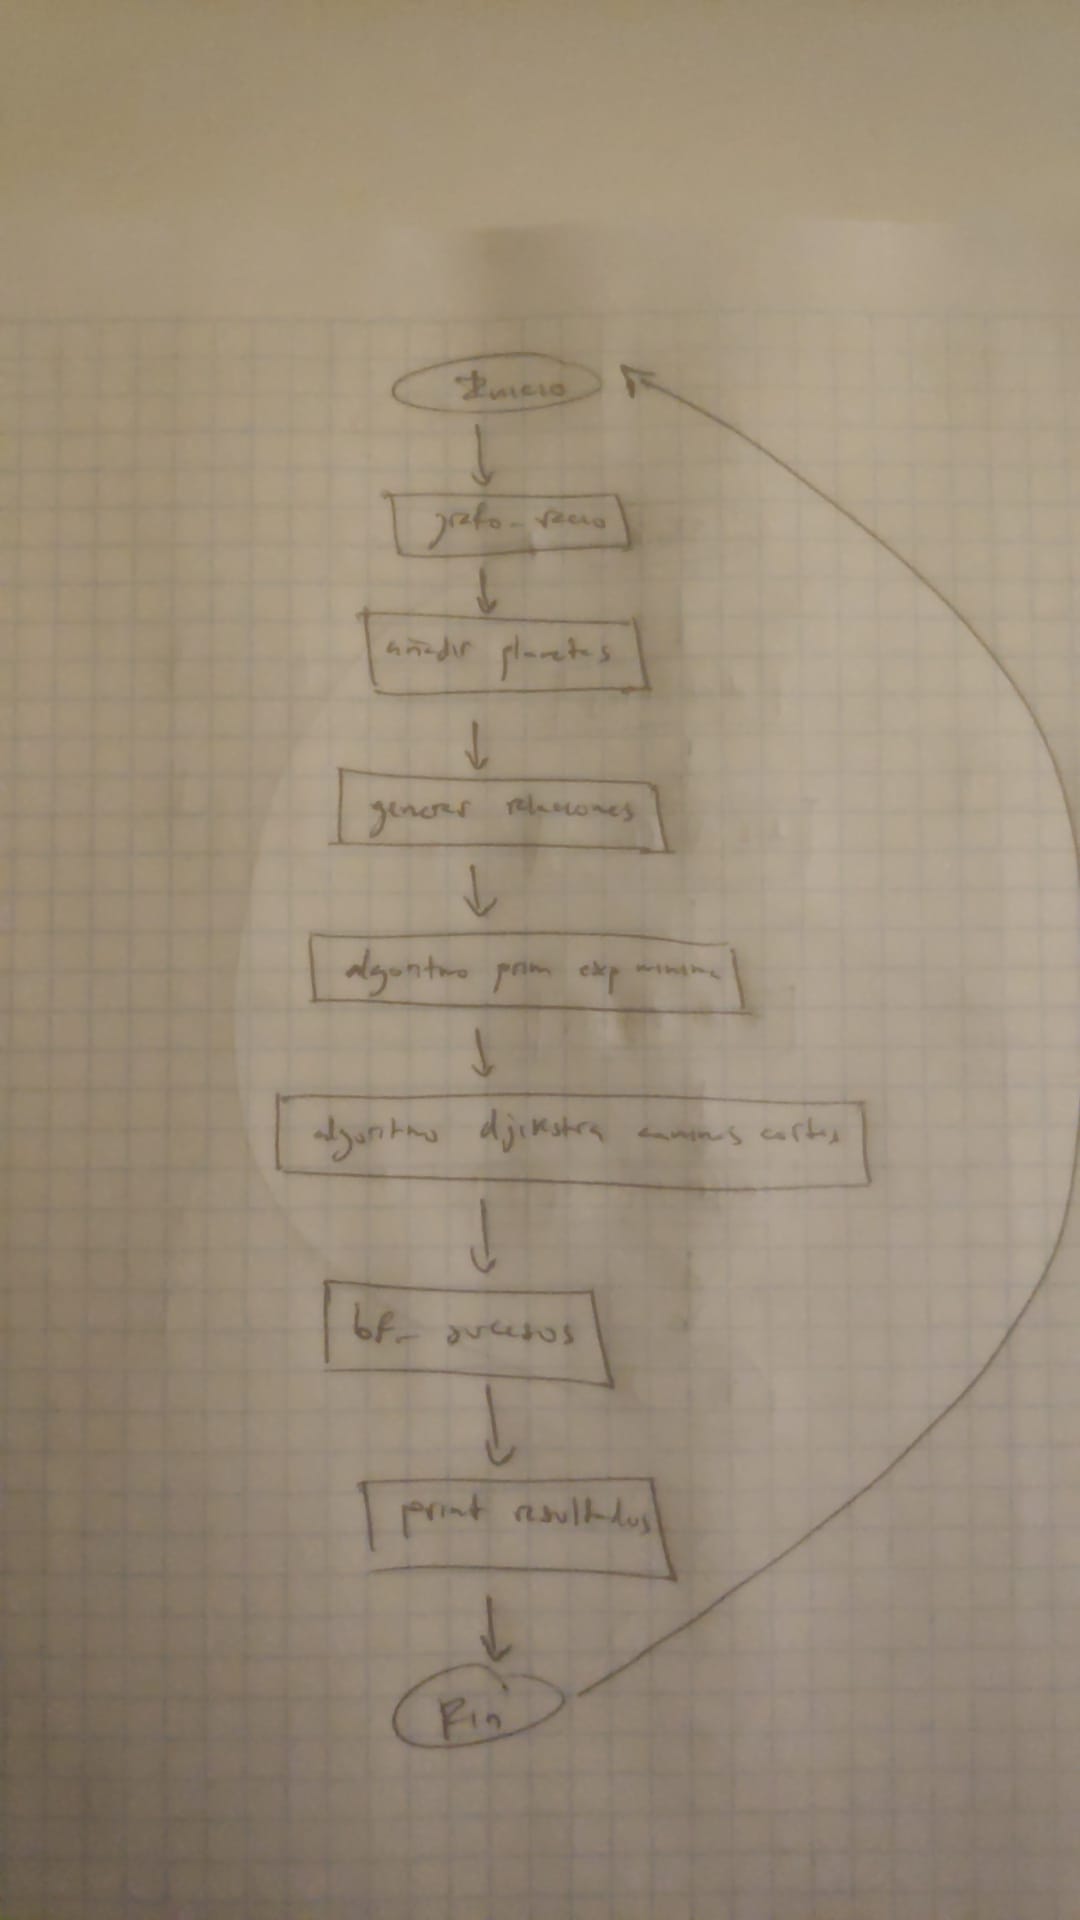 Inicio
grafo_vacio
añadir planetas
generar relaciones
algoritmo prim exp minima
algoritmo djikstra caminos cortos
bf_sucesos
print resultados
Fin